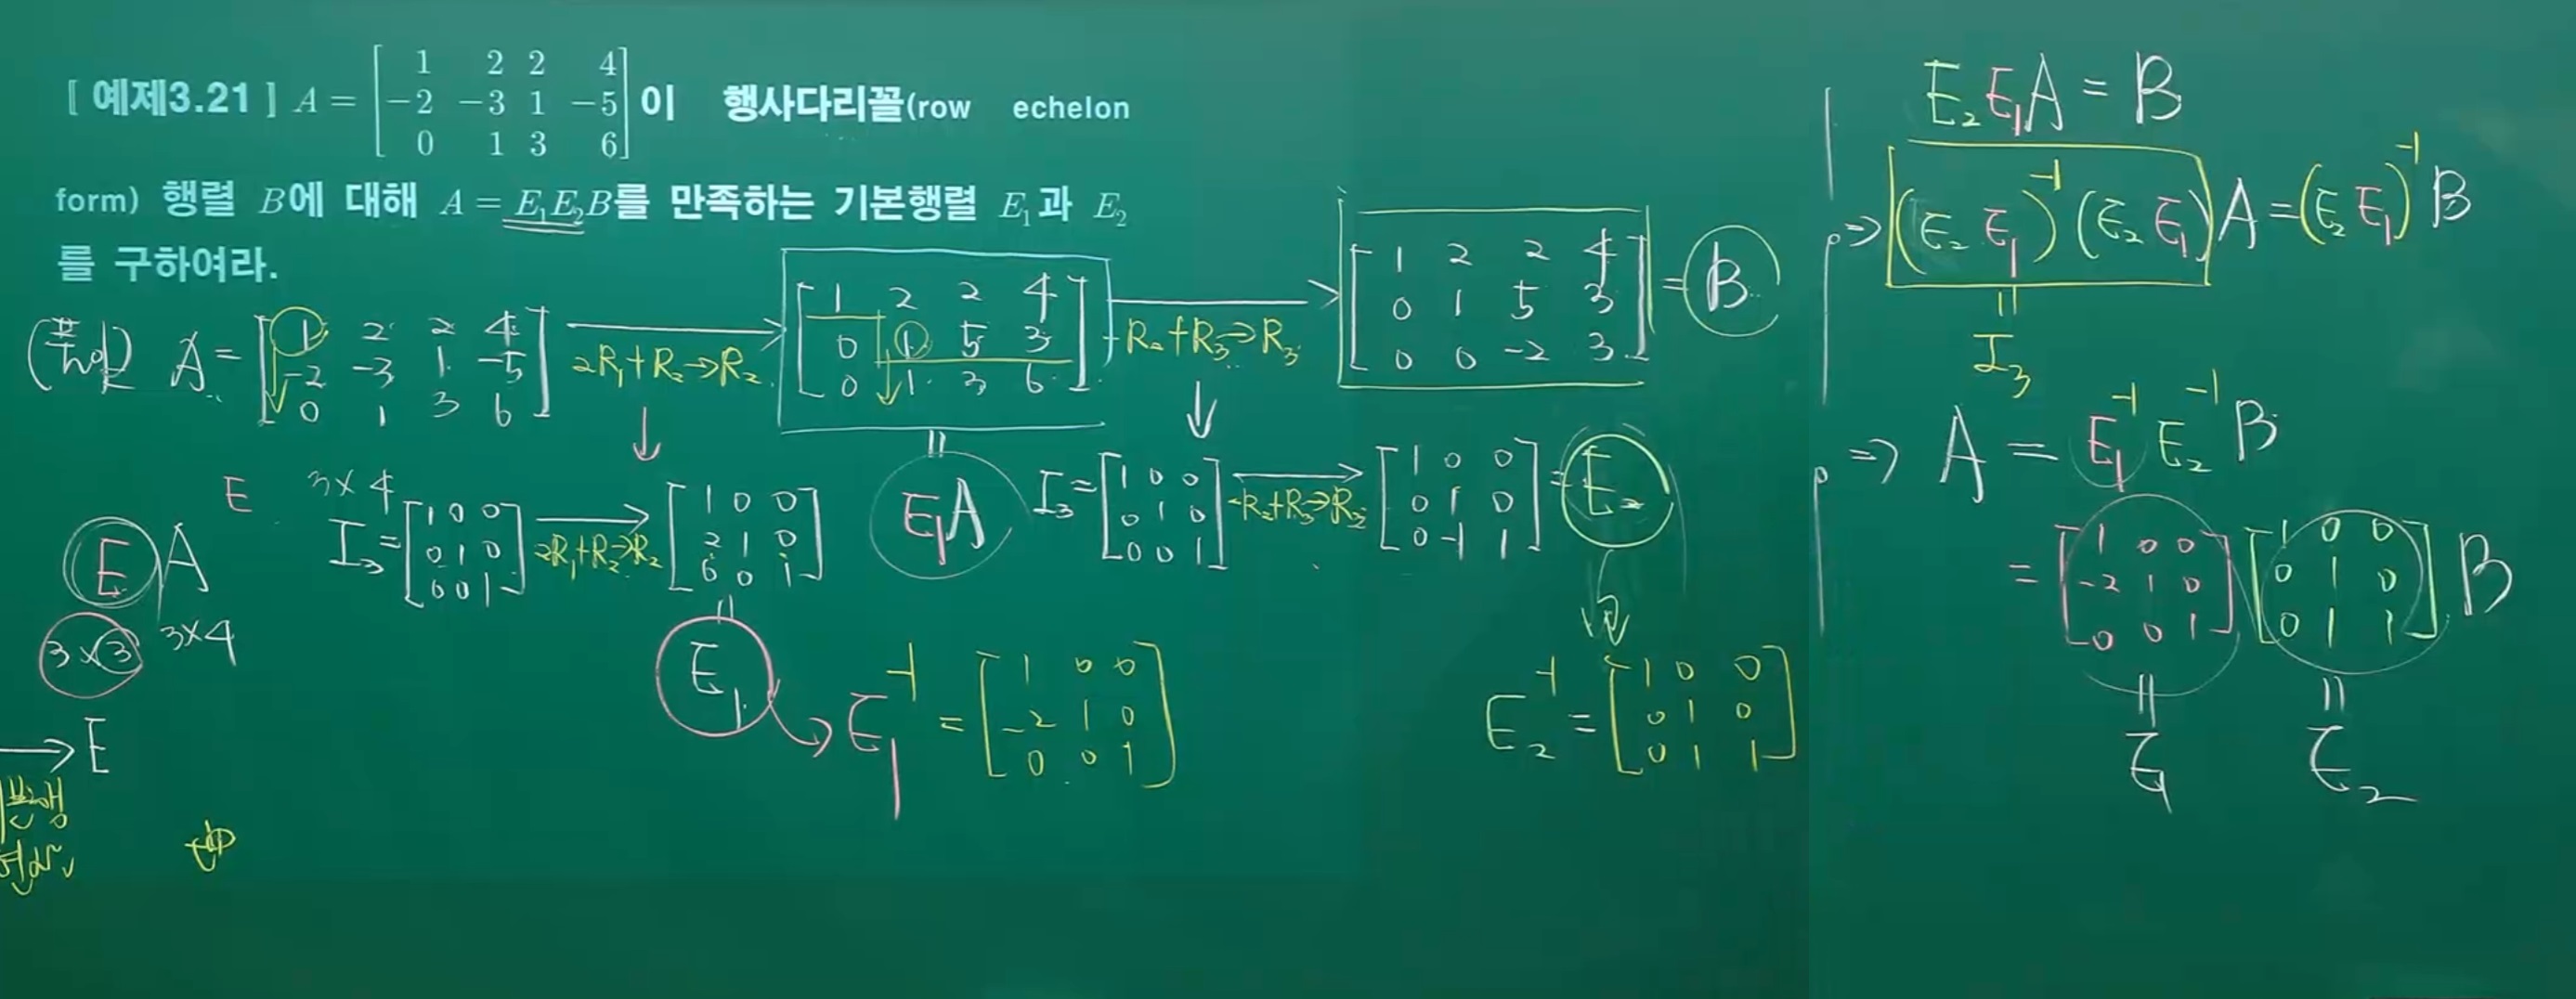 [ 예제3.21 ] A = [ 1 2 2 4 ; -2 -3 1 -5 ; 0 1 3 6 ] 이 행사다리꼴(row echelon
form) 행렬 B에 대해 A = E₁E₂B를 만족하는 기본행렬 E₁과 E₂
를 구하여라.
(풀이) A = [ 1 2 2 4 ; -2 -3 1 -5 ; 0 1 3 6 ]
2R₁+R₂→R₂
[ 1 2 2 4 ; 0 1 5 3 ; 0 1 3 6 ]
-R₂+R₃→R₃
[ 1 2 2 4 ; 0 1 5 3 ; 0 0 -2 3 ] = B
E
3×4
E A
3×3 3×4
I₃ = [ 1 0 0 ; 0 1 0 ; 0 0 1 ]
2R₁+R₂→R₂
[ 1 0 0 ; 2 1 0 ; 0 0 1 ]
=
E₁
=
E₁A
I₃ = [ 1 0 0 ; 0 1 0 ; 0 0 1 ]
-R₂+R₃→R₃
[ 1 0 0 ; 0 1 0 ; 0 -1 1 ] = E₂
→ E
E₁⁻¹ = [ 1 0 0 ; -2 1 0 ; 0 0 1 ]
E₂⁻¹ = [ 1 0 0 ; 0 1 0 ; 0 1 1 ]
E₂E₁A = B
⇒ (E₂E₁)⁻¹(E₂E₁)A = (E₂E₁)⁻¹B
=
I₃
⇒ A = E₁⁻¹E₂⁻¹B
= [ 1 0 0 ; -2 1 0 ; 0 0 1 ] [ 1 0 0 ; 0 1 0 ; 0 1 1 ] B
= =
E₁ E₂